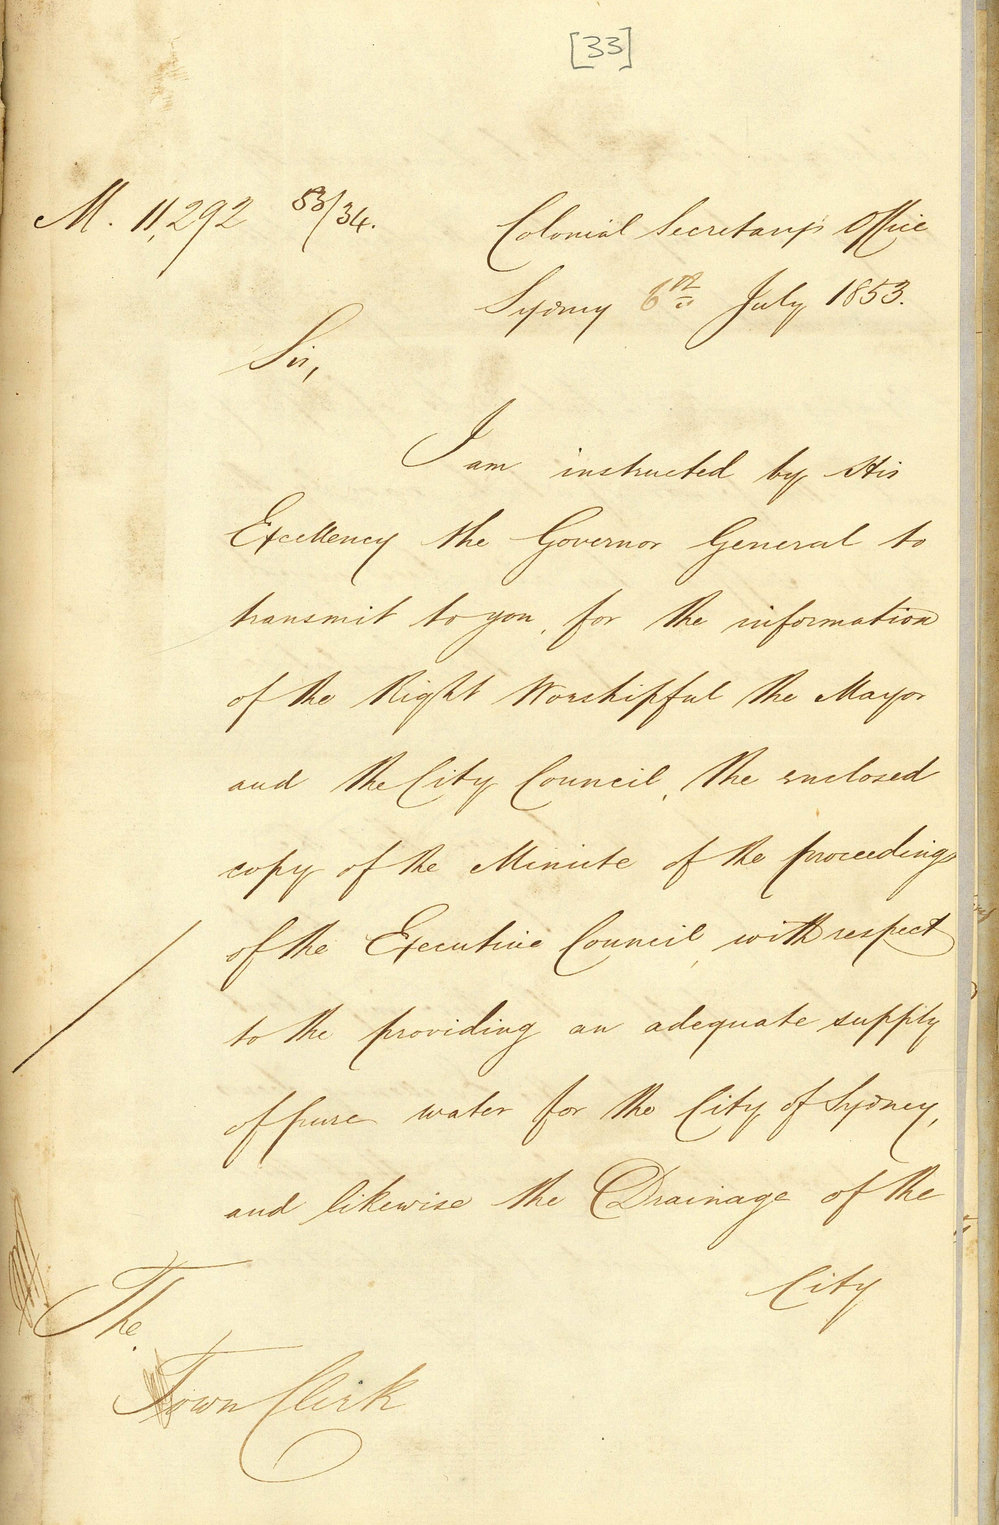 [33]
M. 11,292 53/34.
Colonial Secretary's Office
Sydney 6th July 1853.
Sir,
I am instructed by His
Excellency the Governor General to
transmit to you, for the information
of the Right Worshipful the Mayor
and the City Council, the enclosed
copy of the Minute of the proceedings
of the Executive Council, with respect
to the providing an adequate supply
of pure water for the City of Sydney,
and likewise the Drainage of the
City
The
Town Clerk